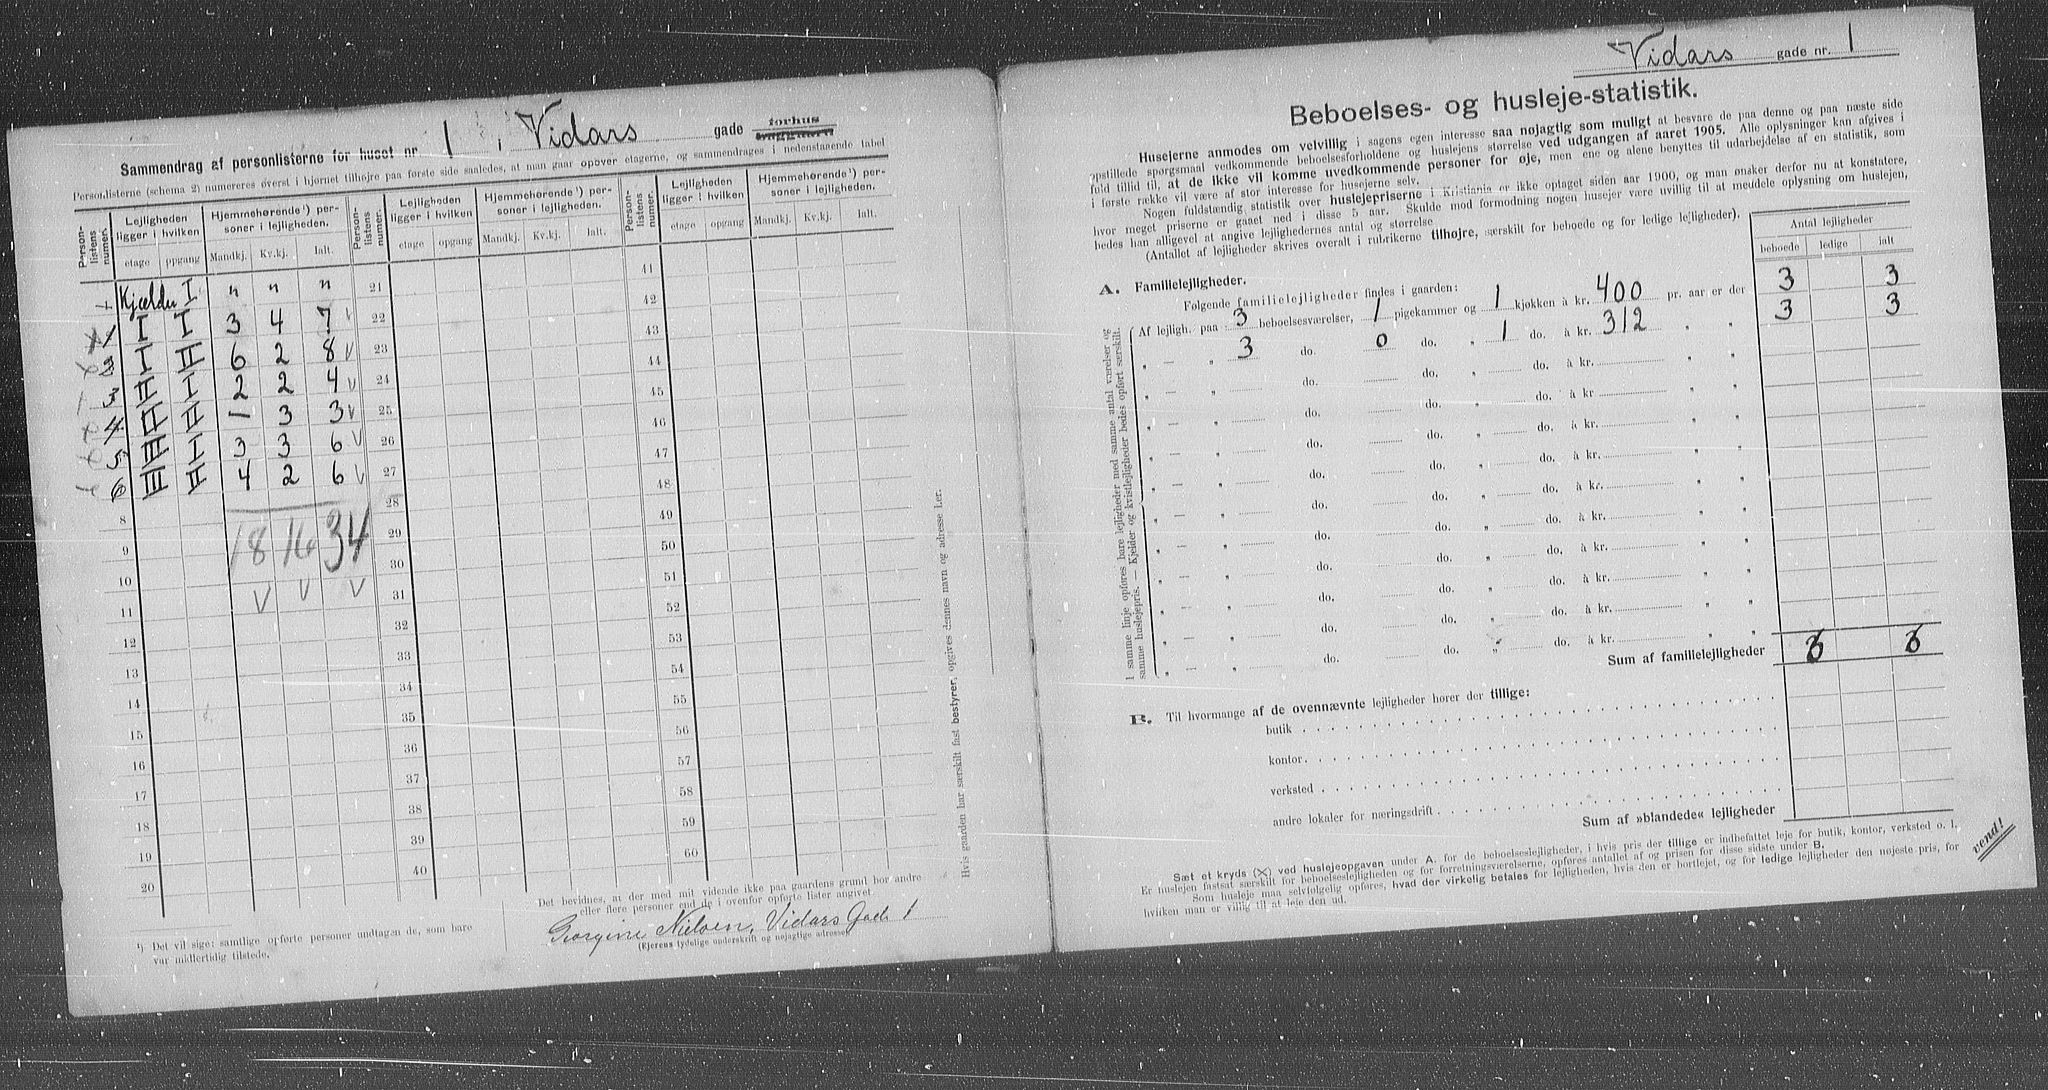 Sammendrag af personlisterne for huset nr. 1 i Vidars gade forhus
Personlisterne (schema 2) numereres øverst i hjørnet tilhøjre paa første side saaledes, at man gaar opover etagerne, og sammendrages i nedenstaaende tabel
Person-listens numer. Lejligheden ligger i hvilken Hjemmehørende¹) personer i lejligheden. Person-listens numer. Lejligheden ligger i hvilken Hjemmehørende¹) personer i lejligheden. Person-listens numer. Lejligheden ligger i hvilken Hjemmehørende¹) personer i lejligheden.
etage opgang Mandkj. Kv.kj. Ialt. etage opgang Mandkj. Kv.kj. Ialt. etage opgang Mandkj. Kv.kj. Ialt.
Kjælder I " " " 21 41
1 I I 3 4 7 v 22 42
2 I II 6 2 8 v 23 43
3 II I 2 2 4 v 24 44
4 II II 1 3 3 v 25 45
5 III I 3 3 6 v 26 46
6 III II 4 2 6 v 27 47
8 28 48
9 18 16 34 29 49
10 30 50
11 v v v 31 51
12 32 52
13 33 53
14 34 54
15 35 55
16 36 56
17 37 57
18 38 58
19 39 59
20 40 60
¹) Det vil sige: samtlige opførte personer undtagen de, som bare
var midlertidig tilstede.
Det bevidnes, at der med mit vidende ikke paa gaardens grund bor andre
eller flere personer end de i ovenfor opførte lister angivet.
Georgine Nielsen, Vidars Gade 1
(Ejerens tydelige underskrift og nøjagtige adresse)
Hvis gaarden har særskilt fast bestyrer, opgives dennes navn og adresse her.
Vidars gade nr. 1
Beboelses- og husleje-statistik.
Husejerne anmodes om velvillig i sagens egen interesse saa nøjagtig som muligt at besvare de paa denne og paa næste side
opstillede spørgsmaal vedkommende beboelsesforholdene og huslejens størrelse ved udgangen af aaret 1905. Alle oplysninger kan afgives i
fuld tillid til, at de ikke vil komme uvedkommende personer for øje, men ene og alene benyttes til udarbejdelse af en statistik, som
i første række vil være af stor interesse for husejerne selv.
Nogen fuldstændig statistik over huslejepriserne i Kristiania er ikke optaget siden aar 1900, og man ønsker derfor nu at konstatere,
hvor meget priserne er gaaet ned i disse 5 aar. Skulde mod formodning nogen husejer være uvillig til at meddele oplysning om huslejen,
bedes han alligevel at angive lejlighedernes antal og størrelse
(Antallet af lejligheder skrives overalt i rubrikerne tilhøjre, særskilt for beboede og for ledige lejligheder).
Antal lejligheder
beboede ledige ialt
A. Familielejligheder.
Følgende familielejligheder findes i gaarden:
Af lejligh. paa 3 beboelsesværelser, 1 pigekammer og 1 kjøkken à kr. 400 pr. aar er der 3 3
" — " 3 do. 0 do. " 1 do. à kr. 312 " " 3 3
" — " do. do. " do. à kr. " "
" — " do. do. " do. à kr " "
" — " do. do. " do. à kr. " "
" — " do. do. " do. à kr. " "
" — " do. do. " do. à kr. " "
" — " do. do. " do. à kr. " "
" — " do. do. " do. à kr. " "
" — " do. do. " do. à kr. " "
" — " do. do. " do. à kr. " "
" — " do. do. " do. à kr. " "
I samme linje opføres bare lejligheder med samme antal værelser og
samme huslejepris. — Kjelder og kvistlejligheder bedes opført særskilt.
Sum af familielejligheder 6 6
B. Til hvormange af de ovennævnte lejligheder hører der tillige:
butik
kontor
verksted
andre lokaler for næringsdrift
Sum af »blandede« lejligheder
Sæt et kryds (X) ved huslejeopgaven under A. for de beboelseslejligheder, i hvis pris der tillige er indbefattet leje for butik, kontor, verksted o. l.
Er huslejen fastsat særskilt for beboelseslejligheden og for forretningsværelserne, opføres antallet af og prisen for disse sidste under B.
Som husleje maa selvfølgelig opføres, hvad der virkelig betales for lejligheden, hvis den er bortlejet, og for ledige lejligheder den nøjeste pris, for
hvilken man er villig til at leje den ud.
vend!